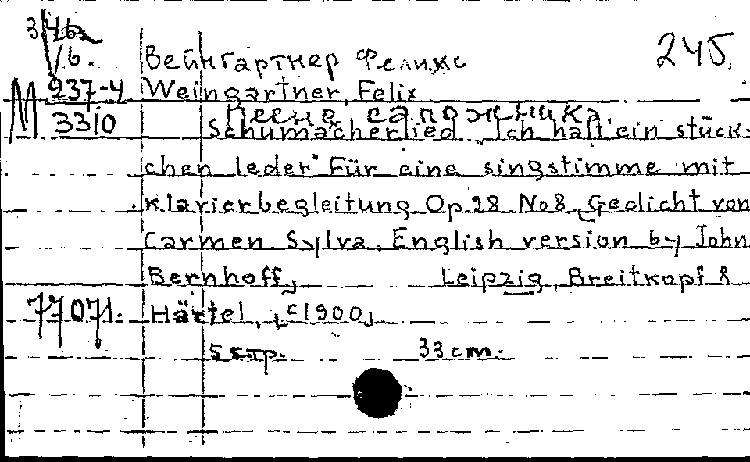 245
Вейнгартнер Феликс
M 937-4 Weingartner, Felix
3310 Песня сапожника.
Schumacherlied „Ich hall ein stück-
chen leder" Für eine singstimme mit
Klavierbegleitung Op 28 No 8, Gedicht von
Carmen Sylva. English version by John
Bernhoff, Leipzig, Breitkopf &
77071. Härtel, [c1900]
5 стр. 33 cm.